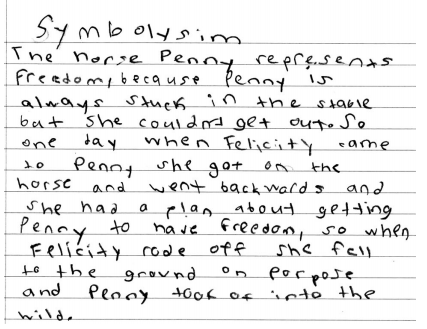 Symbolysim
The horse Penny represents
freedom, because Penny is
always stuck in the stable
but she couldnt get out. So
one day when Felicity came
to Penny she got on the
horse and went backwards and
she had a plan about getting
Penny to have freedom, so when
Felicity rode off she fell
to the ground on porpose
and Penny took of into the
wild.